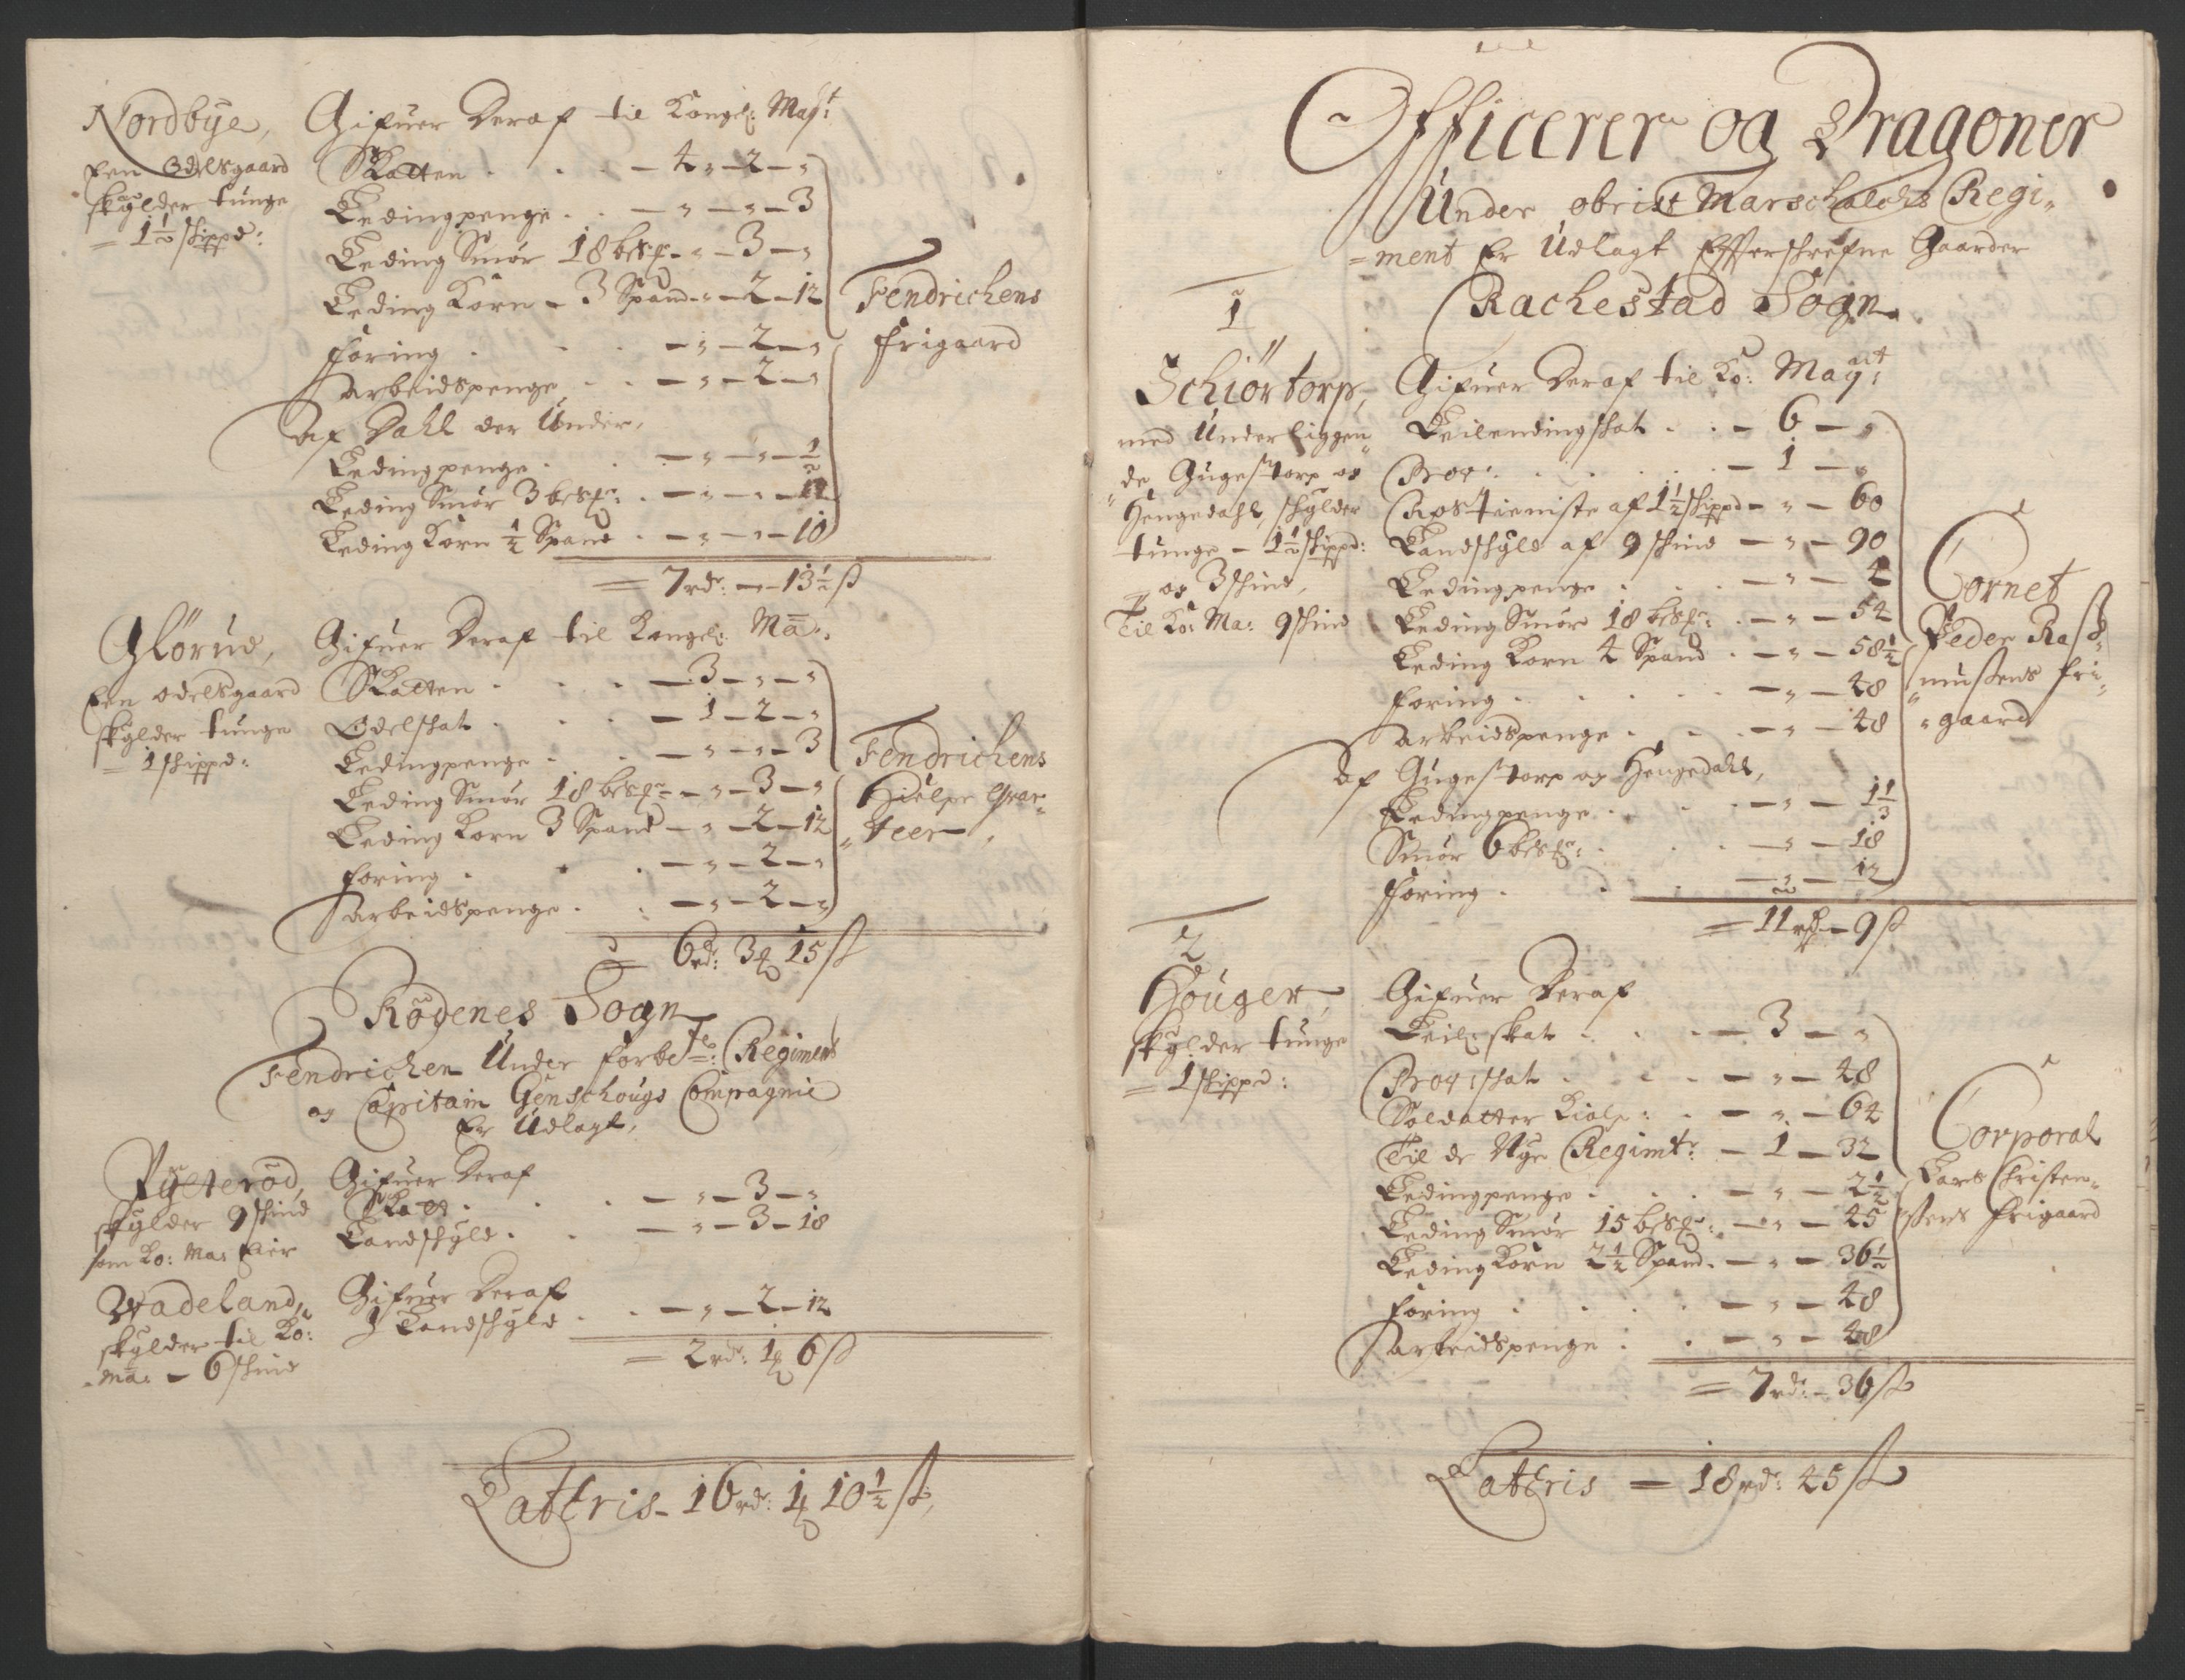 Nordbÿe,
Een Odelsgaard
skÿlder tunge
= 1½ skippd:
Gifuer Deraf til Kongel: Mayt:
Skatten . . . — 4 „ — 2 — „
Ledingpenge . . — „ — „ — 3
Leding Smør 18 bs̃p — „ — 3 — „
Leding Korn — 3 Spand — „ — 2 — 12
foring . . . — „ — 2 — „
arbeidspenge . . — „ — 2 — „
Fendrichens
frigaard
Af Dahl der Under,
Ledingpenge . . — „ — „ — ½
Leding Smør 3 . — „ — „ — 12
Leding Korn ½ Spand . — „ — „ — 10
= 7 rdr: — — 13½ ß
Glørud,
Een odelsgaard
skÿlder tunge
= 1 skippd:
Gifuer Deraf til Kongel: Ma:
Skatten . . . — 3 — „ — „
Odelskat . . . — 1 — 2 — „
Ledingpenge . . — „ — „ — 3
Leding Smør 18 — „ — 3 — „
Leding Korn 3 Spand — „ — 2 — 12
foring . . . — „ — 2 — „
arbeidspenge . . — „ — 2 — „
Fendrichens
Hielpe Quar-
„ teer
= 6 rd: 3 15 ß
Rødenes Sogn
Fendrichen Under forbete: Regiment
og Capitain Genschougs Compagnie
Er Udlagt,
Pÿtterød,
skÿlder 9 skind
som Ko: Ma: Eier
Gifuer Deraf
Skatt . . . — „ — 3 — „
Landskÿld . . — „ — 3 — 18
Vadeland,
skÿlder til Ko:
Ma: — 6 skind
Gifuer Deraf
I Landskÿld . . — „ — 2 — 12
= 2 rdr: 1 6 ß
Lateris — 16 rdr: 1 10½ ß,
Officerer og Dragoner
Under obrist Marschalchs Regi„
=ment Er Udlagt Effterschrefne Gaarder
Rachestad Sogn
1
Schiørtorp,
med Underliggen„
„de Gugestorp og
Hengedahl skÿlder
tunge — 1½ skippd:
og 3 skind,
Til Ko: Ma: 9 skind
Gifuer Deraf til Ko: Mayt:
Leilendingskat . . — 6 — „
Prov: . . . — 1 — „
Rostieniste af 1½ skippd — „ — 60
Landskÿld af 9 skind — „ — 90
Ledingpenge . . . — „ — 4
Leding Smør 18 . — „ — 54
Leding Korn 4 Spand . — „ — 58½
foring . . . . — „ — 48
arbeidspenge . . . — „ — 48
Af Gugestorp og Hengedahl,
Ledingpenge . . . — „ — 1⅓
Smør 6 . . — „ — 18
foring . . . — „ — 12
Cornet
Peder Raß„
„mußens fri„
„gaard
= 11 rdr — 9 ß
2
Houger,
skÿlder tunge
= 1 skippd:
Gifuer Deraf
Leil: skat . . . — 3 — „
Prov: skat . . . — „ — 48
Soldatter Kiole: . — „ — 64
Til de Nÿe Regimtr: — 1 — 32
Ledingpenge . . . — „ — 2½
Leding Smør 15 — „ — 45
Leding Korn 2½ Spand . — „ — 36½
foring . . . . — „ — 48
arbeidspenge . . — „ — 48
Corporal
Lars Christen„
„ßens frigaard
= 7 rdr: — 36 ß
Lateris = 18 rdr: 45 ß